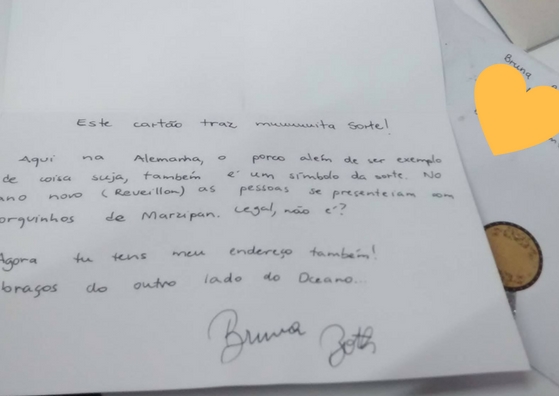 Este cartão traz muuuuuita sorte!
Aqui na Alemanha, o porco além de ser exemplo
de coisa suja, também é um símbolo da sorte. No
ano novo (Reveillon) as pessoas se presenteiam com
orquinhos de Marzipan. Legal, não é?
Agora tu tens meu endereço também!
braços do outro lado do Oceano...
Bruna Both
Bruna